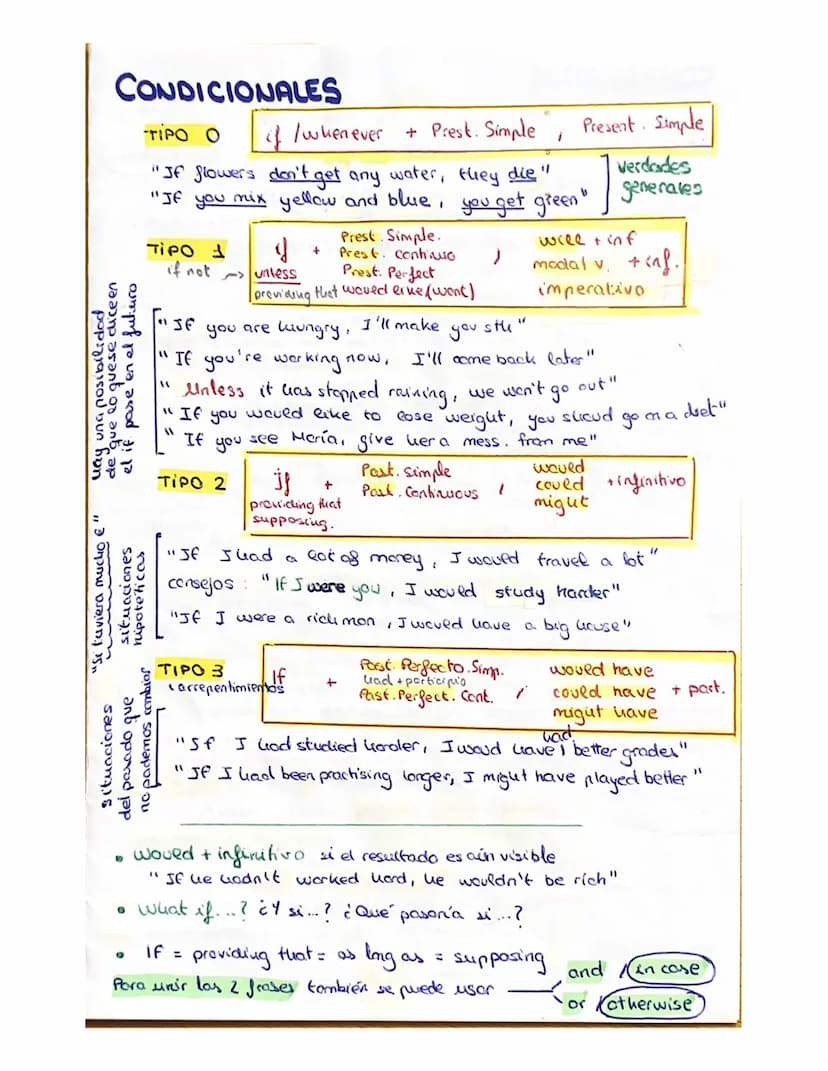 CONDICIONALES
TIPO 0
if / whenever + Prest. Simple , Present. Simple
"If flowers don't get any water, they die"
"If you mix yellow and blue, you get green"
verdades
generales
TIPO 1
if not → unless
if +
providing that
Prest. Simple.
Prest. continuo
Prest. Perfect
would like (want)
,
will + inf
modal v. + inf.
imperativo
hay una posibilidad
de que lo que se dice en
el if pase en el futuro
"If you are hungry, I'll make you sth"
"If you're working now, I'll come back later"
"Unless it has stopped raining, we won't go out"
"If you would like to lose weight, you shoud go on a diet"
"If you see María, give her a mess. from me"
TIPO 2
if +
providing that
supposing.
Past. Simple
Past. Continuous
,
would
could
might
+ infinitivo
"Si tuviera mucho €"
situaciones
hipotéticas
"If I had a lot of money, I would travel a lot"
consejos : "If I were you, I would study harder"
"If I were a rich man, I would have a big house"
TIPO 3
(arrepentimientos
If +
Past. Perfecto. Simp.
had + participio
Past. Perfect. Cont.
,
would have
could have
might have
+ part.
situaciones
del pasado que
no podemos cambiar
"If I had studied harder, I woud have had better grades"
"If I had been practising longer, I might have played better"
• Would + infinitivo si el resultado es aún visible
"If he hadn't worked hard, he wouldn't be rich"
• What if...? ¿Y si...? ¿Qué pasaría si...?
• IF = providing that = as long as = supposing
Para unir las 2 frases también se puede usar
and / in case
or / otherwise